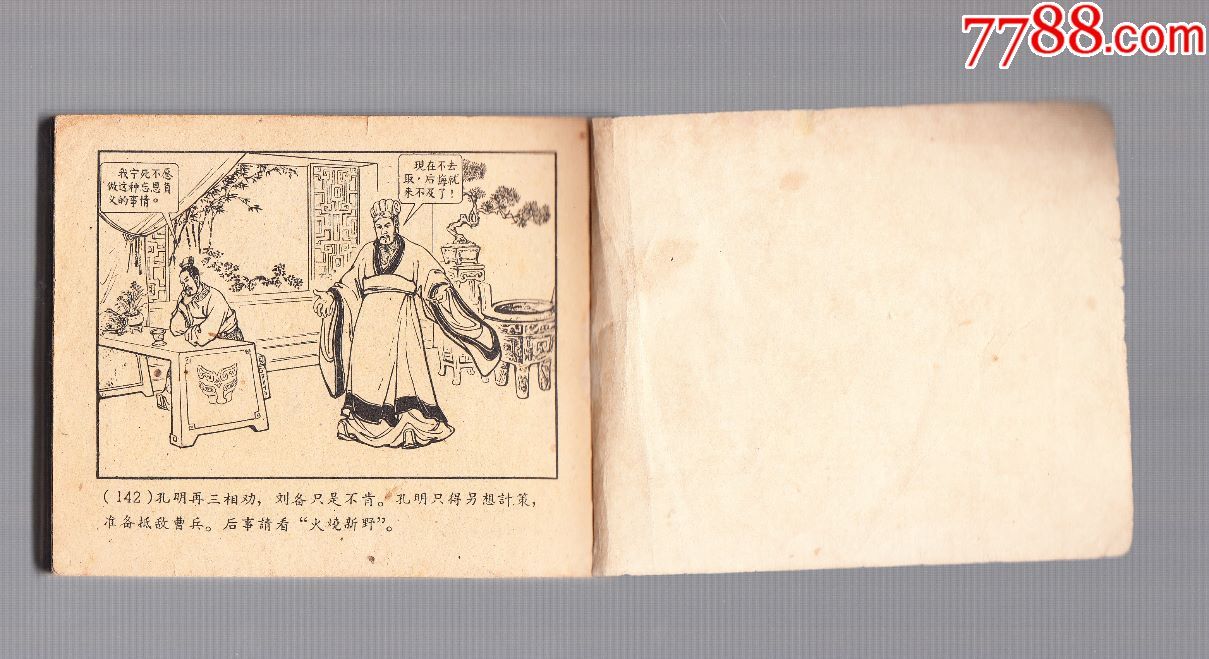 7788.com
我宁死不愿
做这种忘恩負
义的事情。
現在不去
取，后悔就
来不及了！
(142)孔明再三相劝，刘备只是不肯。孔明只得另想計策，
准备抵敌曹兵。后事請看“火燒新野”。